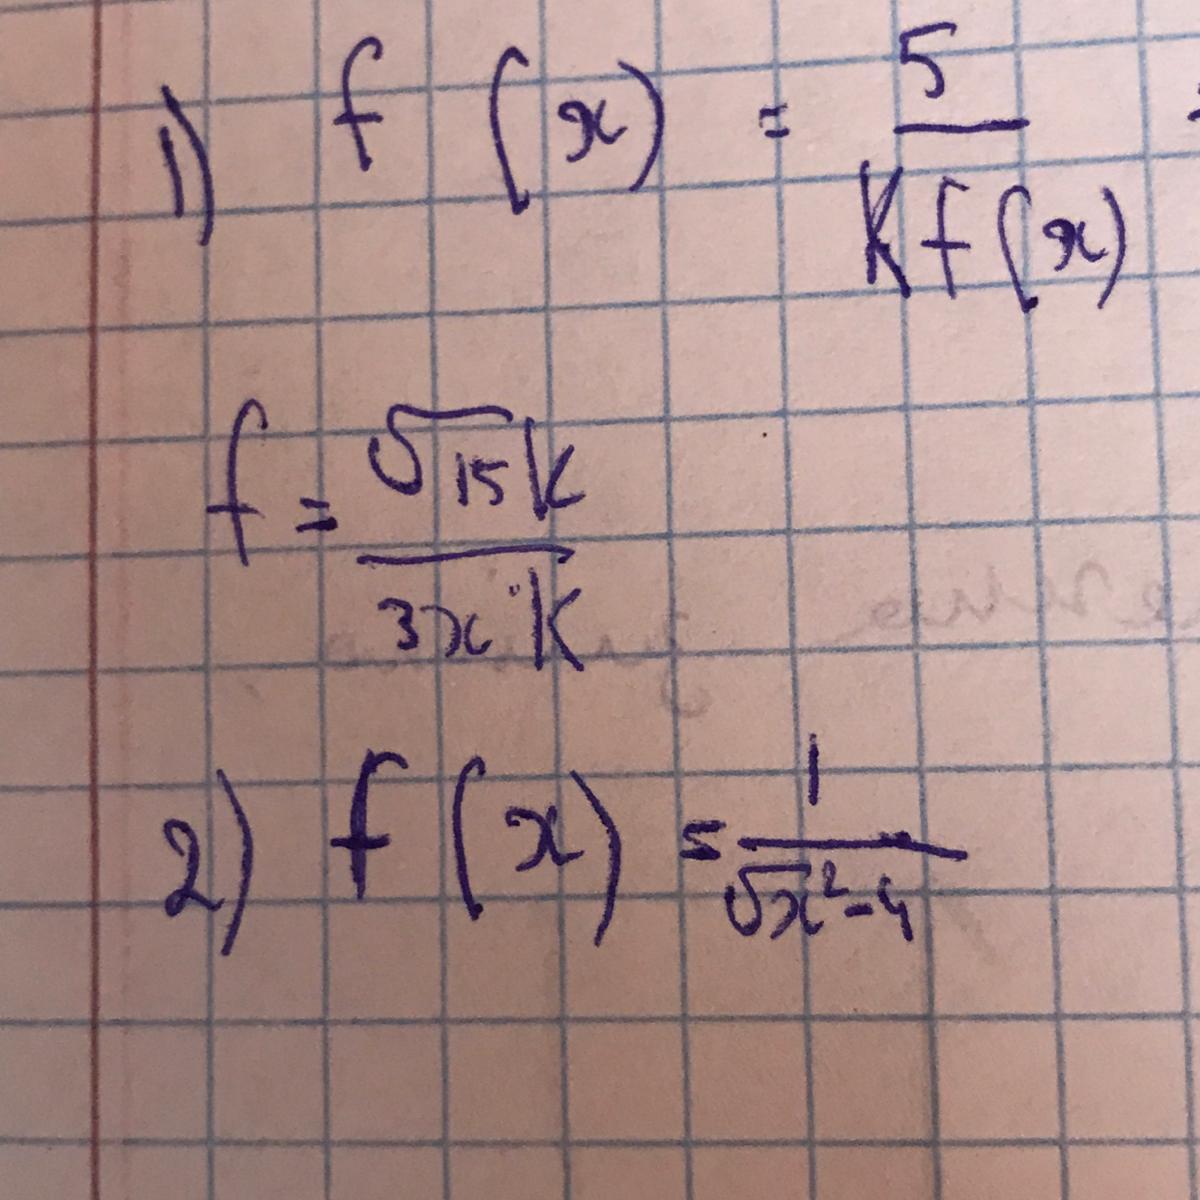 1) f (x) = 5 / K f (x)
f = √15 K / 3x · K
2) f (x) = 1 / √x² - 4